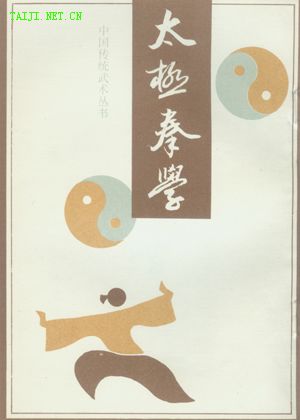 TAIJI.NET.CN
中国传统武术丛书
太极拳學